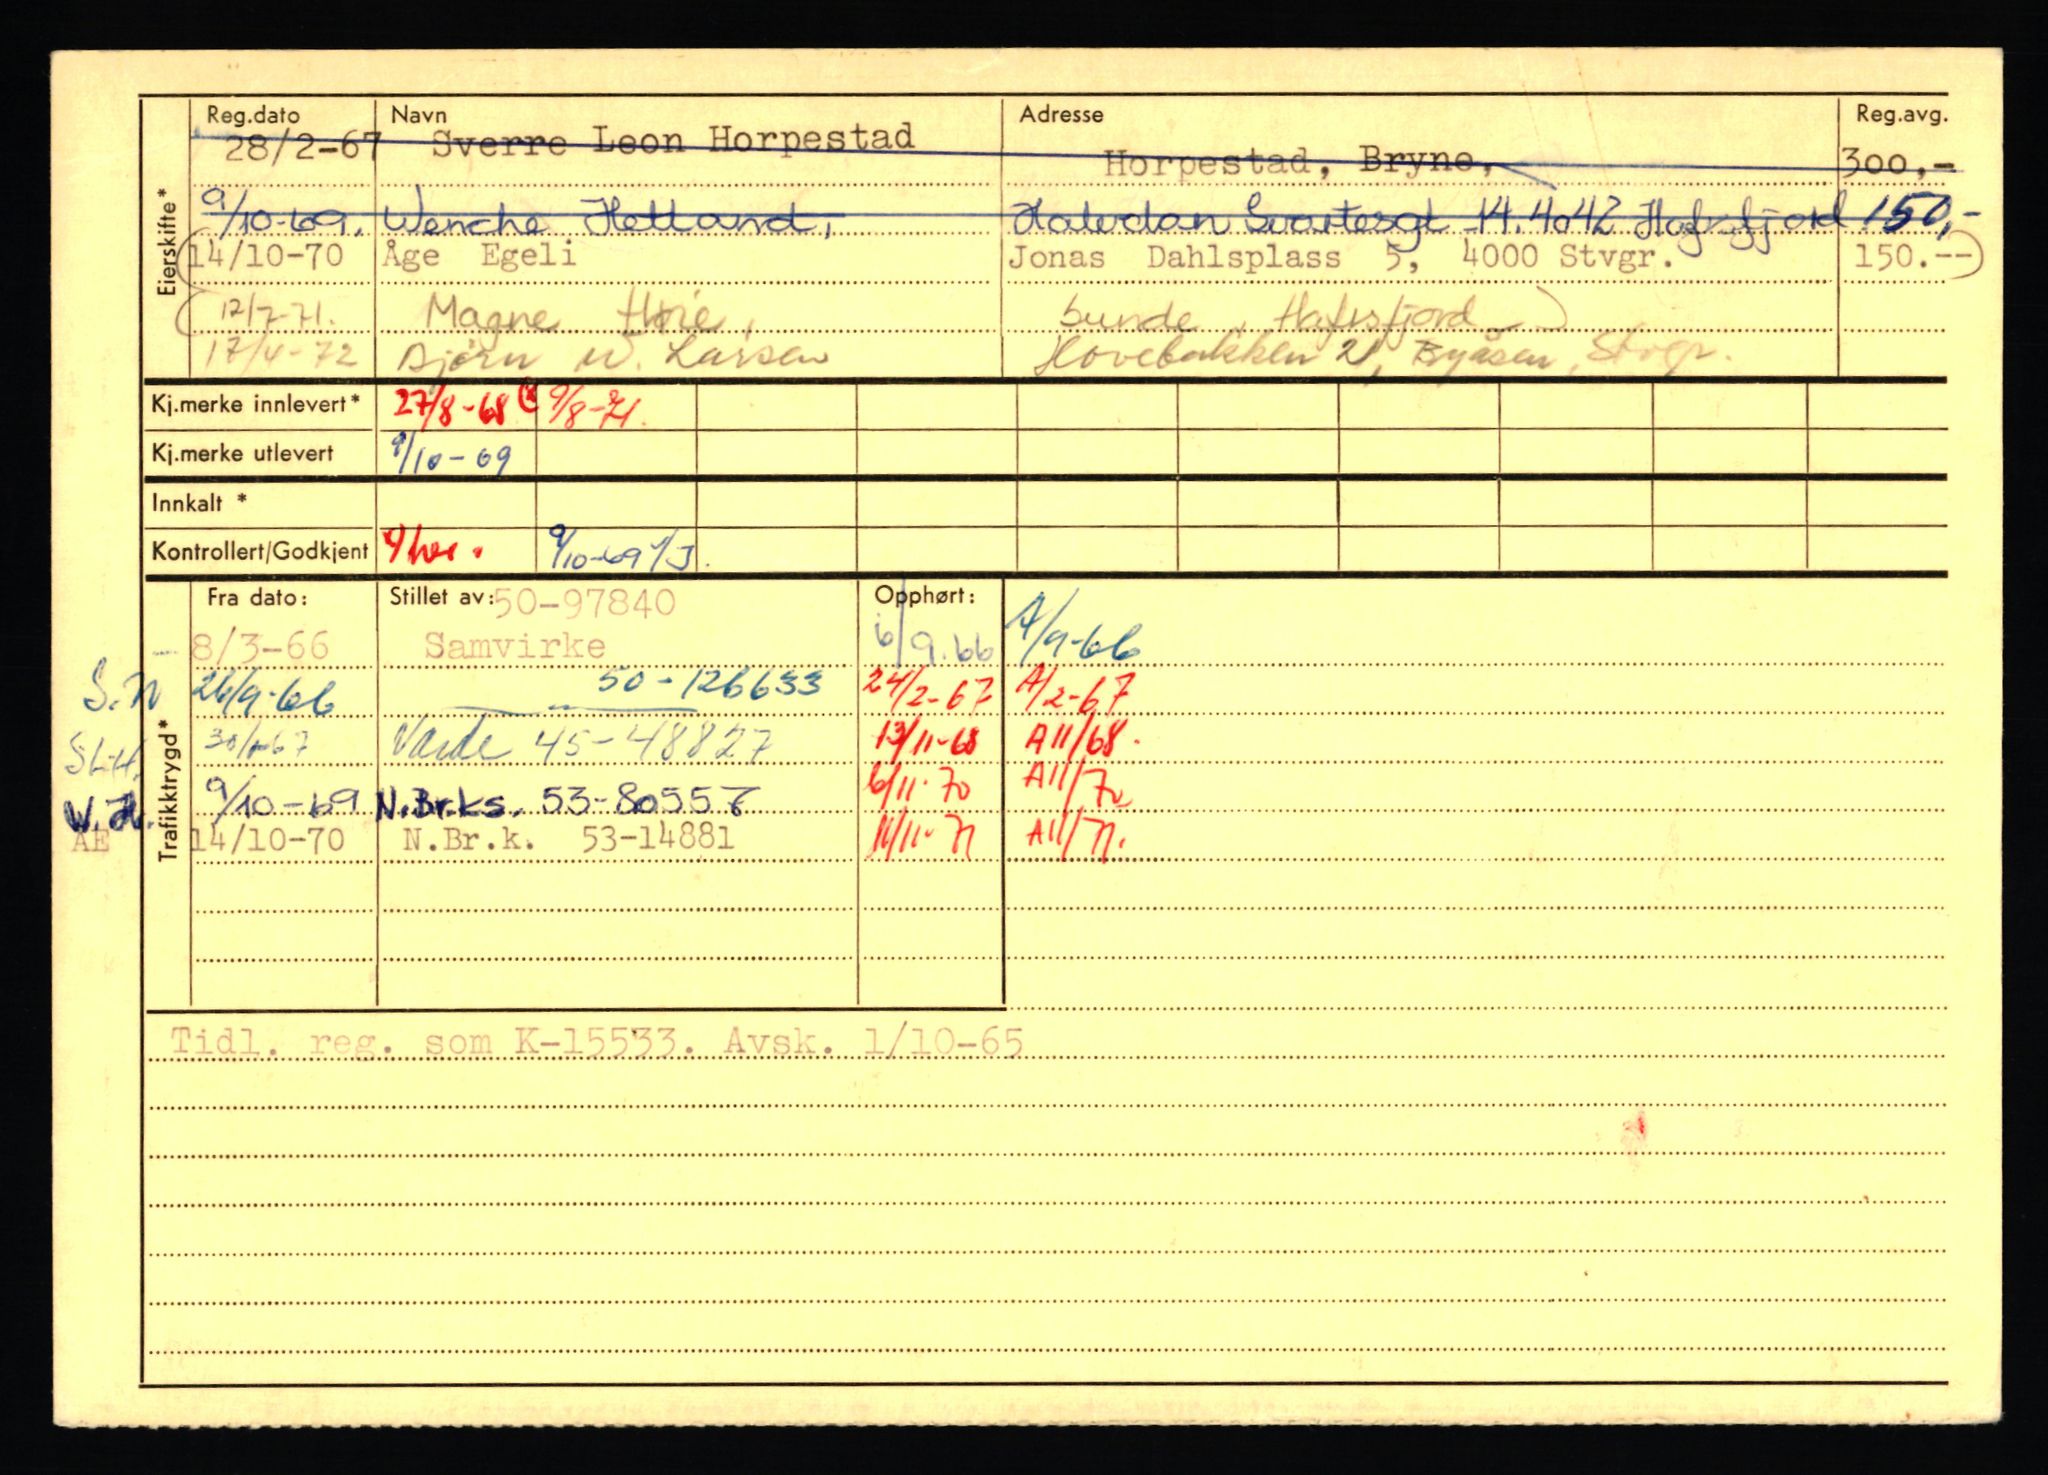 Reg.dato Navn Adresse Reg.avg.
28/2-67 Sverre Leon Horpestad Horpestad, Bryne, 300,-
9/10-69. Wenche Hetland, Halvdan Svartesgt 14. 4042 Hafrsfjord 150,-
14/10-70 Åge Egeli Jonas Dahlsplass 5, 4000 Stvgr. 150.--
12/7-71. Magne Høie, Sunde, Hafrsfjord
17/4-72 Bjørn W. Larsen Hovebakken 21, Byåsen, Stvgr.
Eierskifte*
Kj.merke innlevert* 27/8-68 9/8-71.
Kj.merke utlevert 9/10-69
Innkalt *
Kontrollert/Godkjent 9/10-69
Fra dato: Stillet av: 50-97840 Opphørt:
8/3-66 Samvirke 6/9.66 A/9-66
S.N 26/9-66 —"— 50-126633 24/2-67 A/2-67
S.L.H. Varde 45-48827 13/11-68 A11/68.
W.H. 9/10-69 N.Br.ks. 53-80557 6/11-70 A11/70
AE 14/10-70 N.Br.k. 53-14881 11/11-71 A11/71.
Trafikktrygd*
Tidl. reg. som K-15533. Avsk. 1/10-65